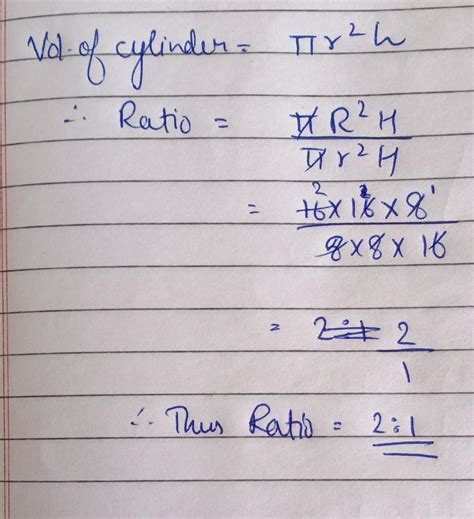 Vol. of cylinder = πr²h
∴ Ratio = πR²H / πr²H
= 16² × 16² × 8¹ / 8 × 8 × 16
= 2/1
∴ Thus Ratio = 2:1